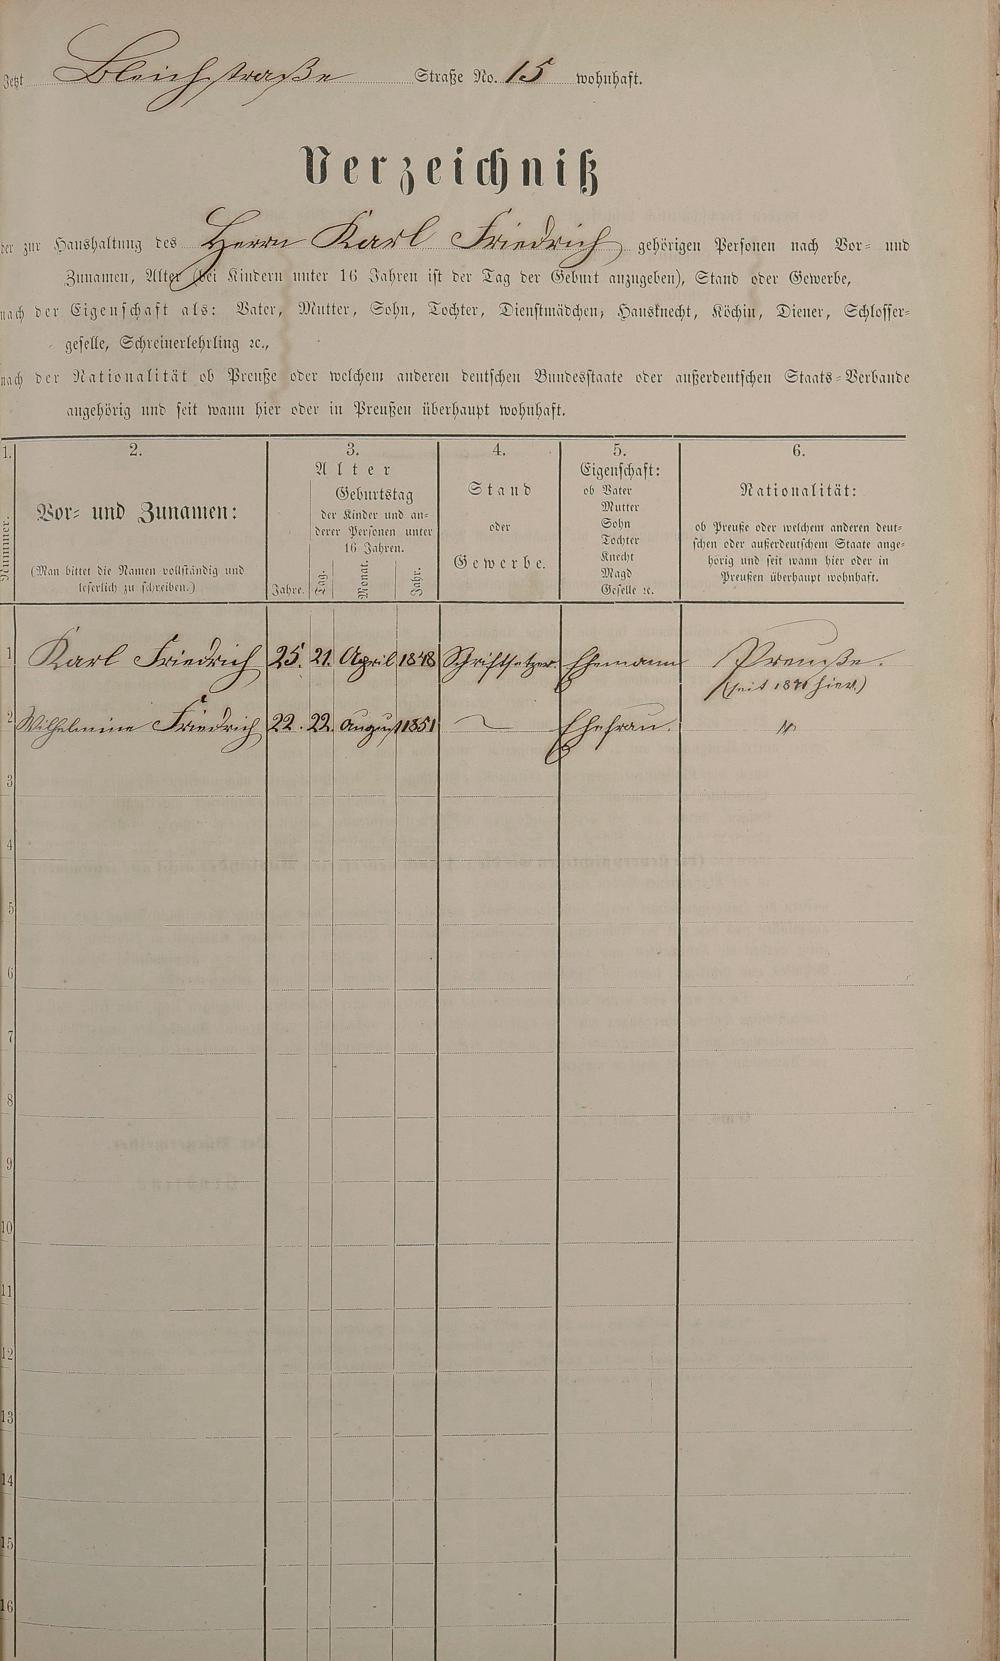 Jetzt Bleichstraße Straße No. 15 wohnhaft.
Verzeichniß
der zur Haushaltung des Herrn Karl Friedrich gehörigen Personen nach Vor- und
Zunamen, Alter (bei Kindern unter 16 Jahren ist der Tag der Geburt anzugeben), Stand oder Gewerbe,
nach der Eigenschaft als: Vater, Mutter, Sohn, Tochter, Dienstmädchen, Hausknecht, Köchin, Diener, Schlosser-
geselle, Schreinerlehrling ꝛc.,
nach der Nationalität ob Preuße oder welchem anderen deutschen Bundesstaate oder außerdeutschen Staats-Verbande
angehörig und seit wann hier oder in Preußen überhaupt wohnhaft.
1. 2. 3. 4. 5. 6.
Nummer.
Vor- und Zunamen:
(Man bittet die Namen vollständig und
leserlich zu schreiben.)
Alter
Geburtstag
der Kinder und an-
derer Personen unter
16 Jahren.
Jahre. Tag. Monat. Jahr.
Stand
oder
Gewerbe.
Eigenschaft:
ob Vater
Mutter
Sohn
Tochter
Knecht
Magd
Geselle ꝛc.
Nationalität:
ob Preuße oder welchem anderen deut-
schen oder außerdeutschem Staate ange-
hörig und seit wann hier oder in
Preußen überhaupt wohnhaft.
1 Karl Friedrich 25. 21. April 1848 Schriftsetzer Ehemann Preuße.
(seit hier.)
2 Wilhelmine Friedrich 22. 22. August 1851 Ehefrau. "
3
4
5
6
7
8
9
10
11
12
13
14
15
16